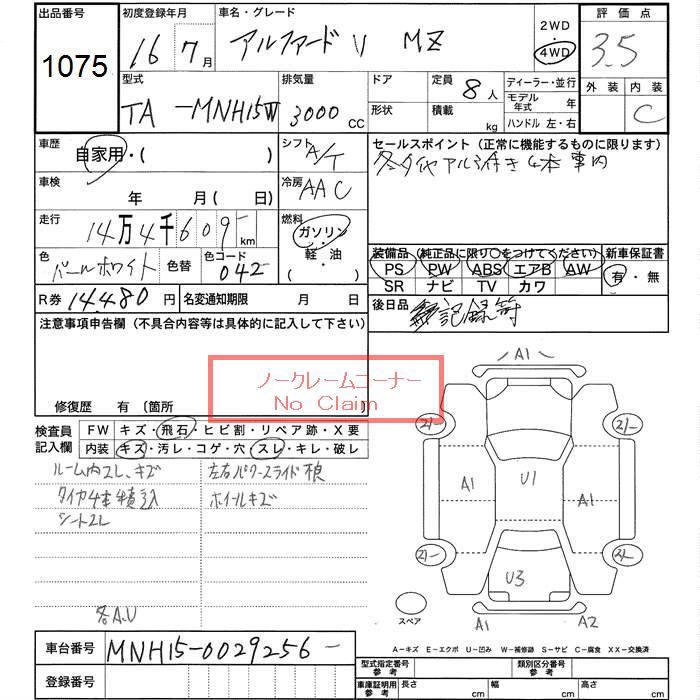 出品番号
1075
初度登録年月
16 7月
車名・グレード
アルファード V MZ
2WD
・
4WD
評価点
3.5
外装 内装
C
型式
TA-MNH15W
排気量
3000 CC
ドア
形状
定員 8人
積載 kg
ディーラー・並行
モデル年式 年
ハンドル 左・右
車歴
自家用・( )
シフト
A/T
セールスポイント(正常に機能するものに限ります)
冬タイヤアルミ付き4本車内
車検
年 月( )
冷房
AAC
走行
14万4千609 km
燃料
ガソリン
・
軽・油
( )
装備品(純正品に限り○をつけてください)
PS PW ABS エアB AW
SR ナビ TV カワ
新車保証書
有・無
色
パールホワイト
色替
色コード
042
R券 14,480円
名変通知期限 月 日
後日品
記録簿
注意事項申告欄(不具合内容等は具体的に記入して下さい)
ノークレームコーナー
No Claim
修復歴 有(箇所
検査員記入欄
FW キズ・飛石・ヒビ割・リペア跡・X要
内装 キズ・汚レ・コゲ・穴・スレ・キレ・破レ
ルーム内スレ、キズ
左右パワースライド
タイヤ4本積込
ホイルキズ
シートスレ
各A、U
A1
A1
U1
A1
U3
A1
A2
スペア
車台番号 MNH15-0029256
登録番号
A-キズ E-エクボ U-凹み W-補修跡 S-サビ C-腐食 XX-交換済
型式指定番号 参考
類別区分番号 参考
車庫証明用 参考
長さ cm
幅 cm
高さ cm